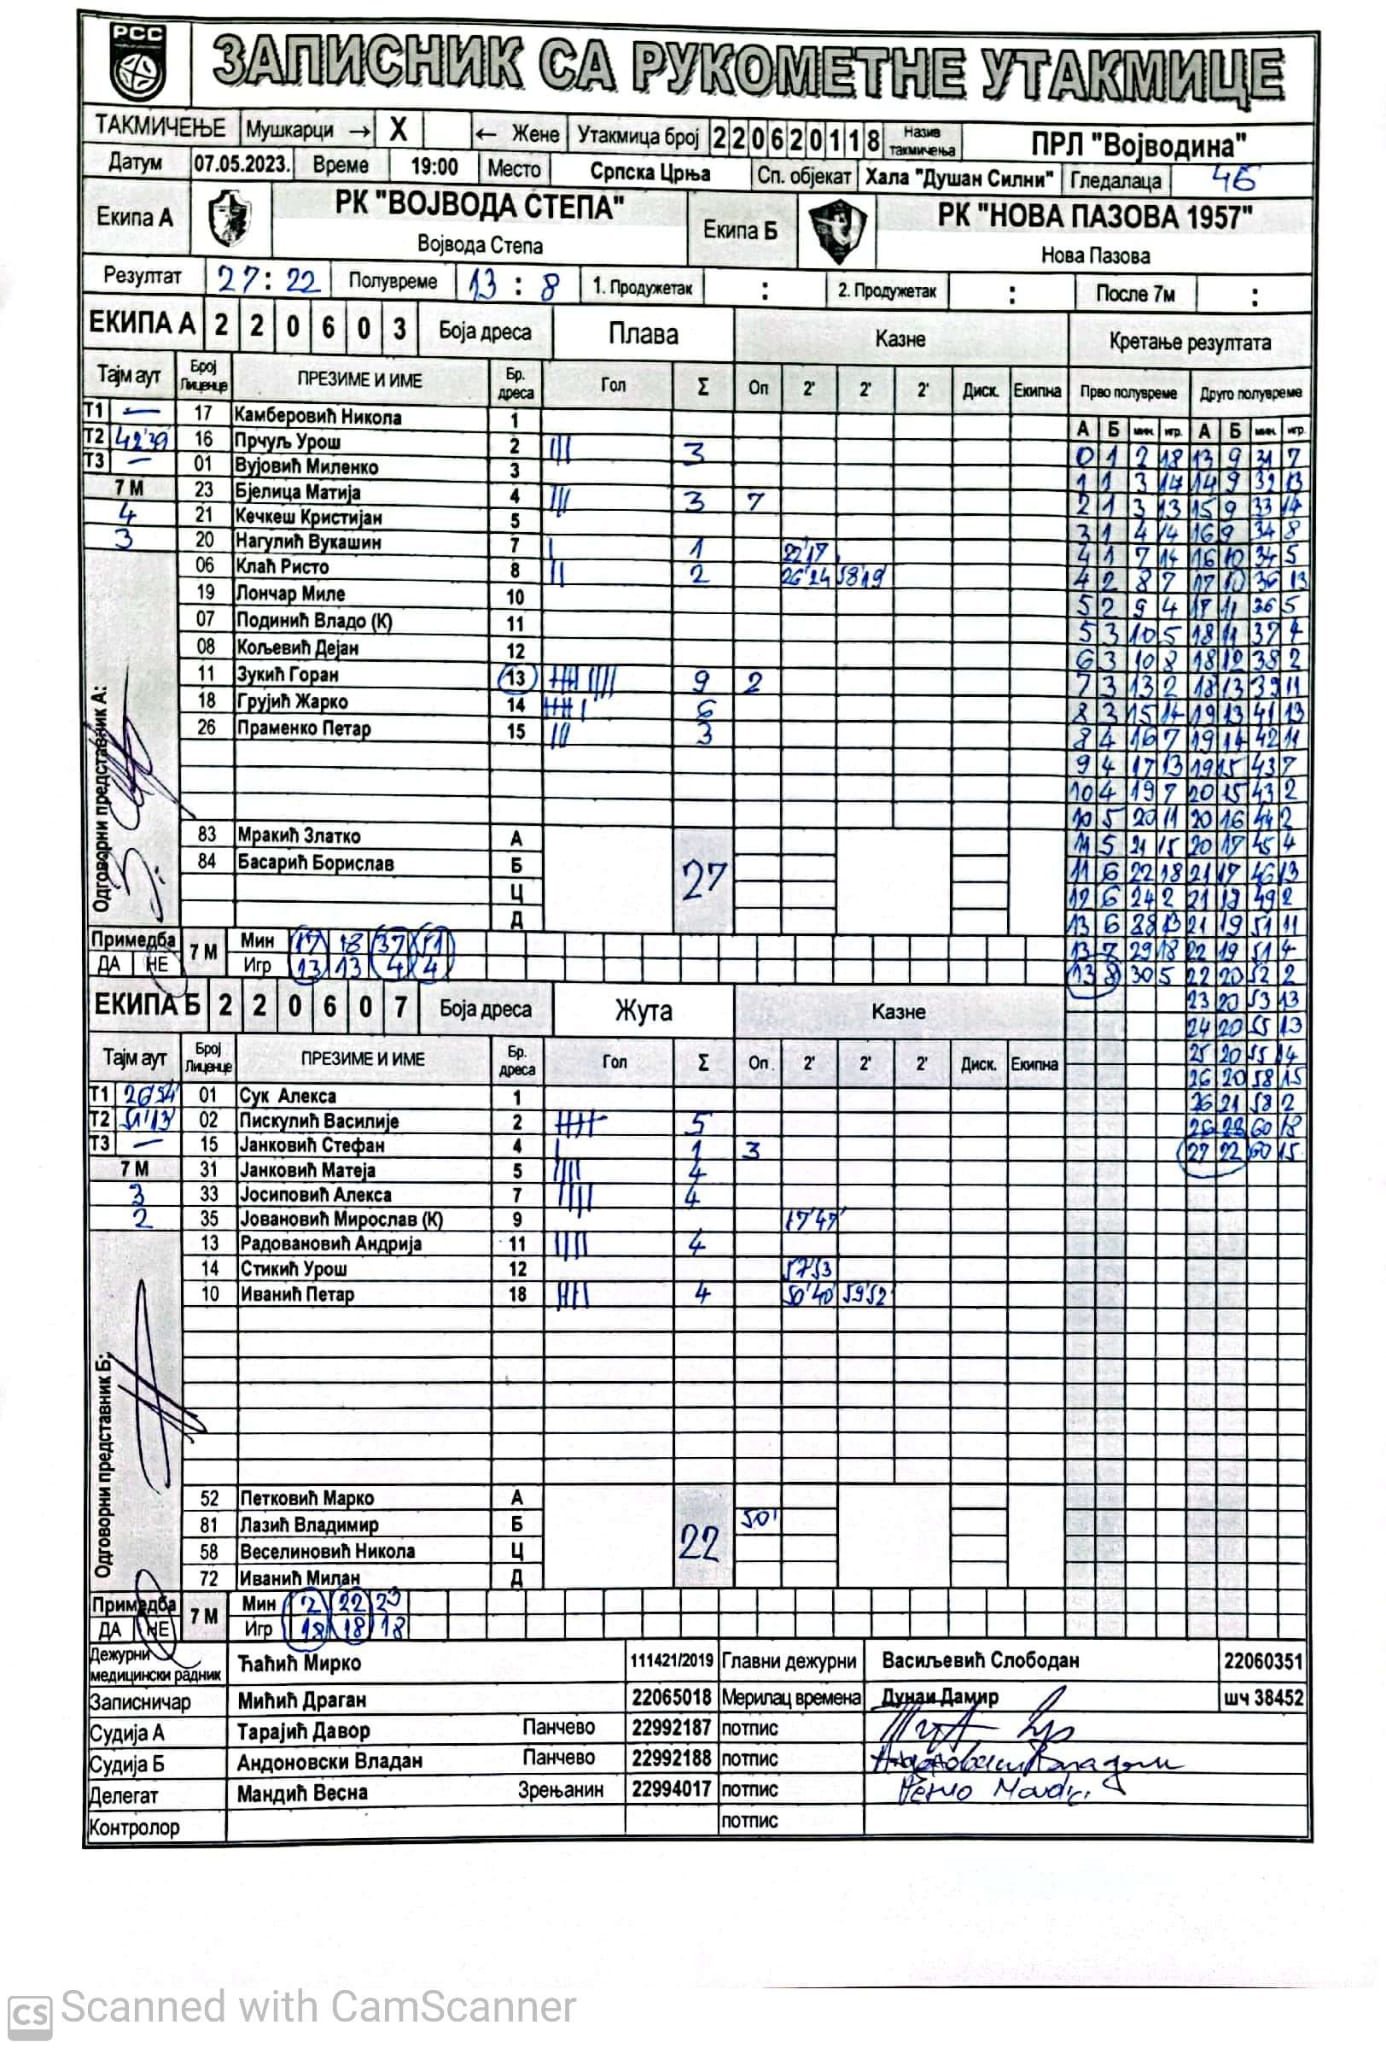 РСС
ЗАПИСНИК СА РУКОМЕТНЕ УТАКМИЦЕ
ТАКМИЧЕЊЕ Мушкарци → X ← Жене Утакмица број 220620118 Назив такмичења ПРЛ "Војводина"
Датум 07.05.2023. Време 19:00 Место Српска Црња Сп. објекат Хала "Душан Силни" Гледалаца
Екипа А РК "ВОЈВОДА СТЕПА" Војвода Степа Екипа Б РК "НОВА ПАЗОВА 1957" Нова Пазова
Резултат 27:22 Полувреме 13:8 1. Продужетак : 2. Продужетак : После 7м :
ЕКИПА А 2 2 0 6 0 3 Боја дреса Плава Казне Кретање резултата
Тајм аут Број Лиценце ПРЕЗИМЕ И ИМЕ Бр. дреса Гол Σ Оп 2' 2' 2' Диск. Екипна Прво полувреме Друго полувреме
А Б мин. игр. А Б мин. игр.
Т1 — 17 Камберовић Никола 1
Т2 42'39 16 Прчуљ Урош 2 III 3
Т3 — 01 Вујовић Миленко 3
7 М 23 Бјелица Матија 4 III 3 7
4 21 Кечкеш Кристијан 5
3 20 Нагулић Вукашин 7 I 1 22'17
06 Клаћ Ристо 8 II 2 26'24 58'19
19 Лончар Миле 10
07 Подинић Владо (К) 11
08 Кољевић Дејан 12
11 Зукић Горан 13 9 2
18 Грујић Жарко 14 6
26 Праменко Петар 15 III 3
83 Мракић Златко А
84 Басарић Борислав Б
Ц
Д
27
Одговорни представник А:
Примедба ДА НЕ 7 М
Мин 17 18 37 51
Игр 13 13 4 4
0 1 2 18 13 9 31 7
1 1 3 14 14 9 32 13
2 1 3 13 15 9 33 14
3 1 4 14 16 9 34 8
4 1 7 14 16 10 34 5
4 2 8 7 17 10 36 13
5 2 9 4 17 11 36 5
5 3 10 5 18 11 37 4
6 3 10 8 18 12 38 2
7 3 13 2 18 13 39 11
8 3 15 14 19 13 41 13
8 4 16 7 19 14 42 11
9 4 17 13 19 15 43 7
10 4 19 7 20 15 43 2
10 5 20 11 20 16 44 2
11 5 21 15 20 17 45 4
11 6 22 18 21 17 46 13
12 6 24 2 21 18 49 2
13 6 28 13 21 19 51 11
13 7 29 18 22 19 51 4
13 8 30 5 22 20 52 2
23 20 53 13
24 20 55 13
25 20 55 14
26 20 58 15
26 21 58 2
26 22 60 18
27 22 60 15
ЕКИПА Б 2 2 0 6 0 7 Боја дреса Жута Казне
Тајм аут Број Лиценце ПРЕЗИМЕ И ИМЕ Бр. дреса Гол Σ Оп. 2' 2' 2' Диск. Екипна
Т1 26'54 01 Сук Алекса 1
Т2 51'13 02 Пискулић Василије 2 5
Т3 — 15 Јанковић Стефан 4 I 1 3
7 М 31 Јанковић Матеја 5 IIII 4
3 33 Јосиповић Алекса 7 IIII 4
2 35 Јовановић Мирослав (К) 9 17'47'
13 Радовановић Андрија 11 IIII 4
14 Стикић Урош 12 57'53
10 Иванић Петар 18 4 50'40' 59'52'
52 Петковић Марко А
81 Лазић Владимир Б 50'
58 Веселиновић Никола Ц
72 Иванић Милан Д
22
Одговорни представник Б:
Примедба ДА НЕ 7 М
Мин 2 22 29
Игр 18 18 18
Дежурни медицински радник Ћаћић Мирко 111421/2019 Главни дежурни Васиљевић Слободан 22060351
Записничар Мићић Драган 22065018 Мерилац времена Дунаи Дамир шч 38452
Судија А Тарајић Давор Панчево 22992187 потпис
Судија Б Андоновски Владан Панчево 22992188 потпис
Делегат Мандић Весна Зрењанин 22994017 потпис
Контролор потпис
CS Scanned with CamScanner